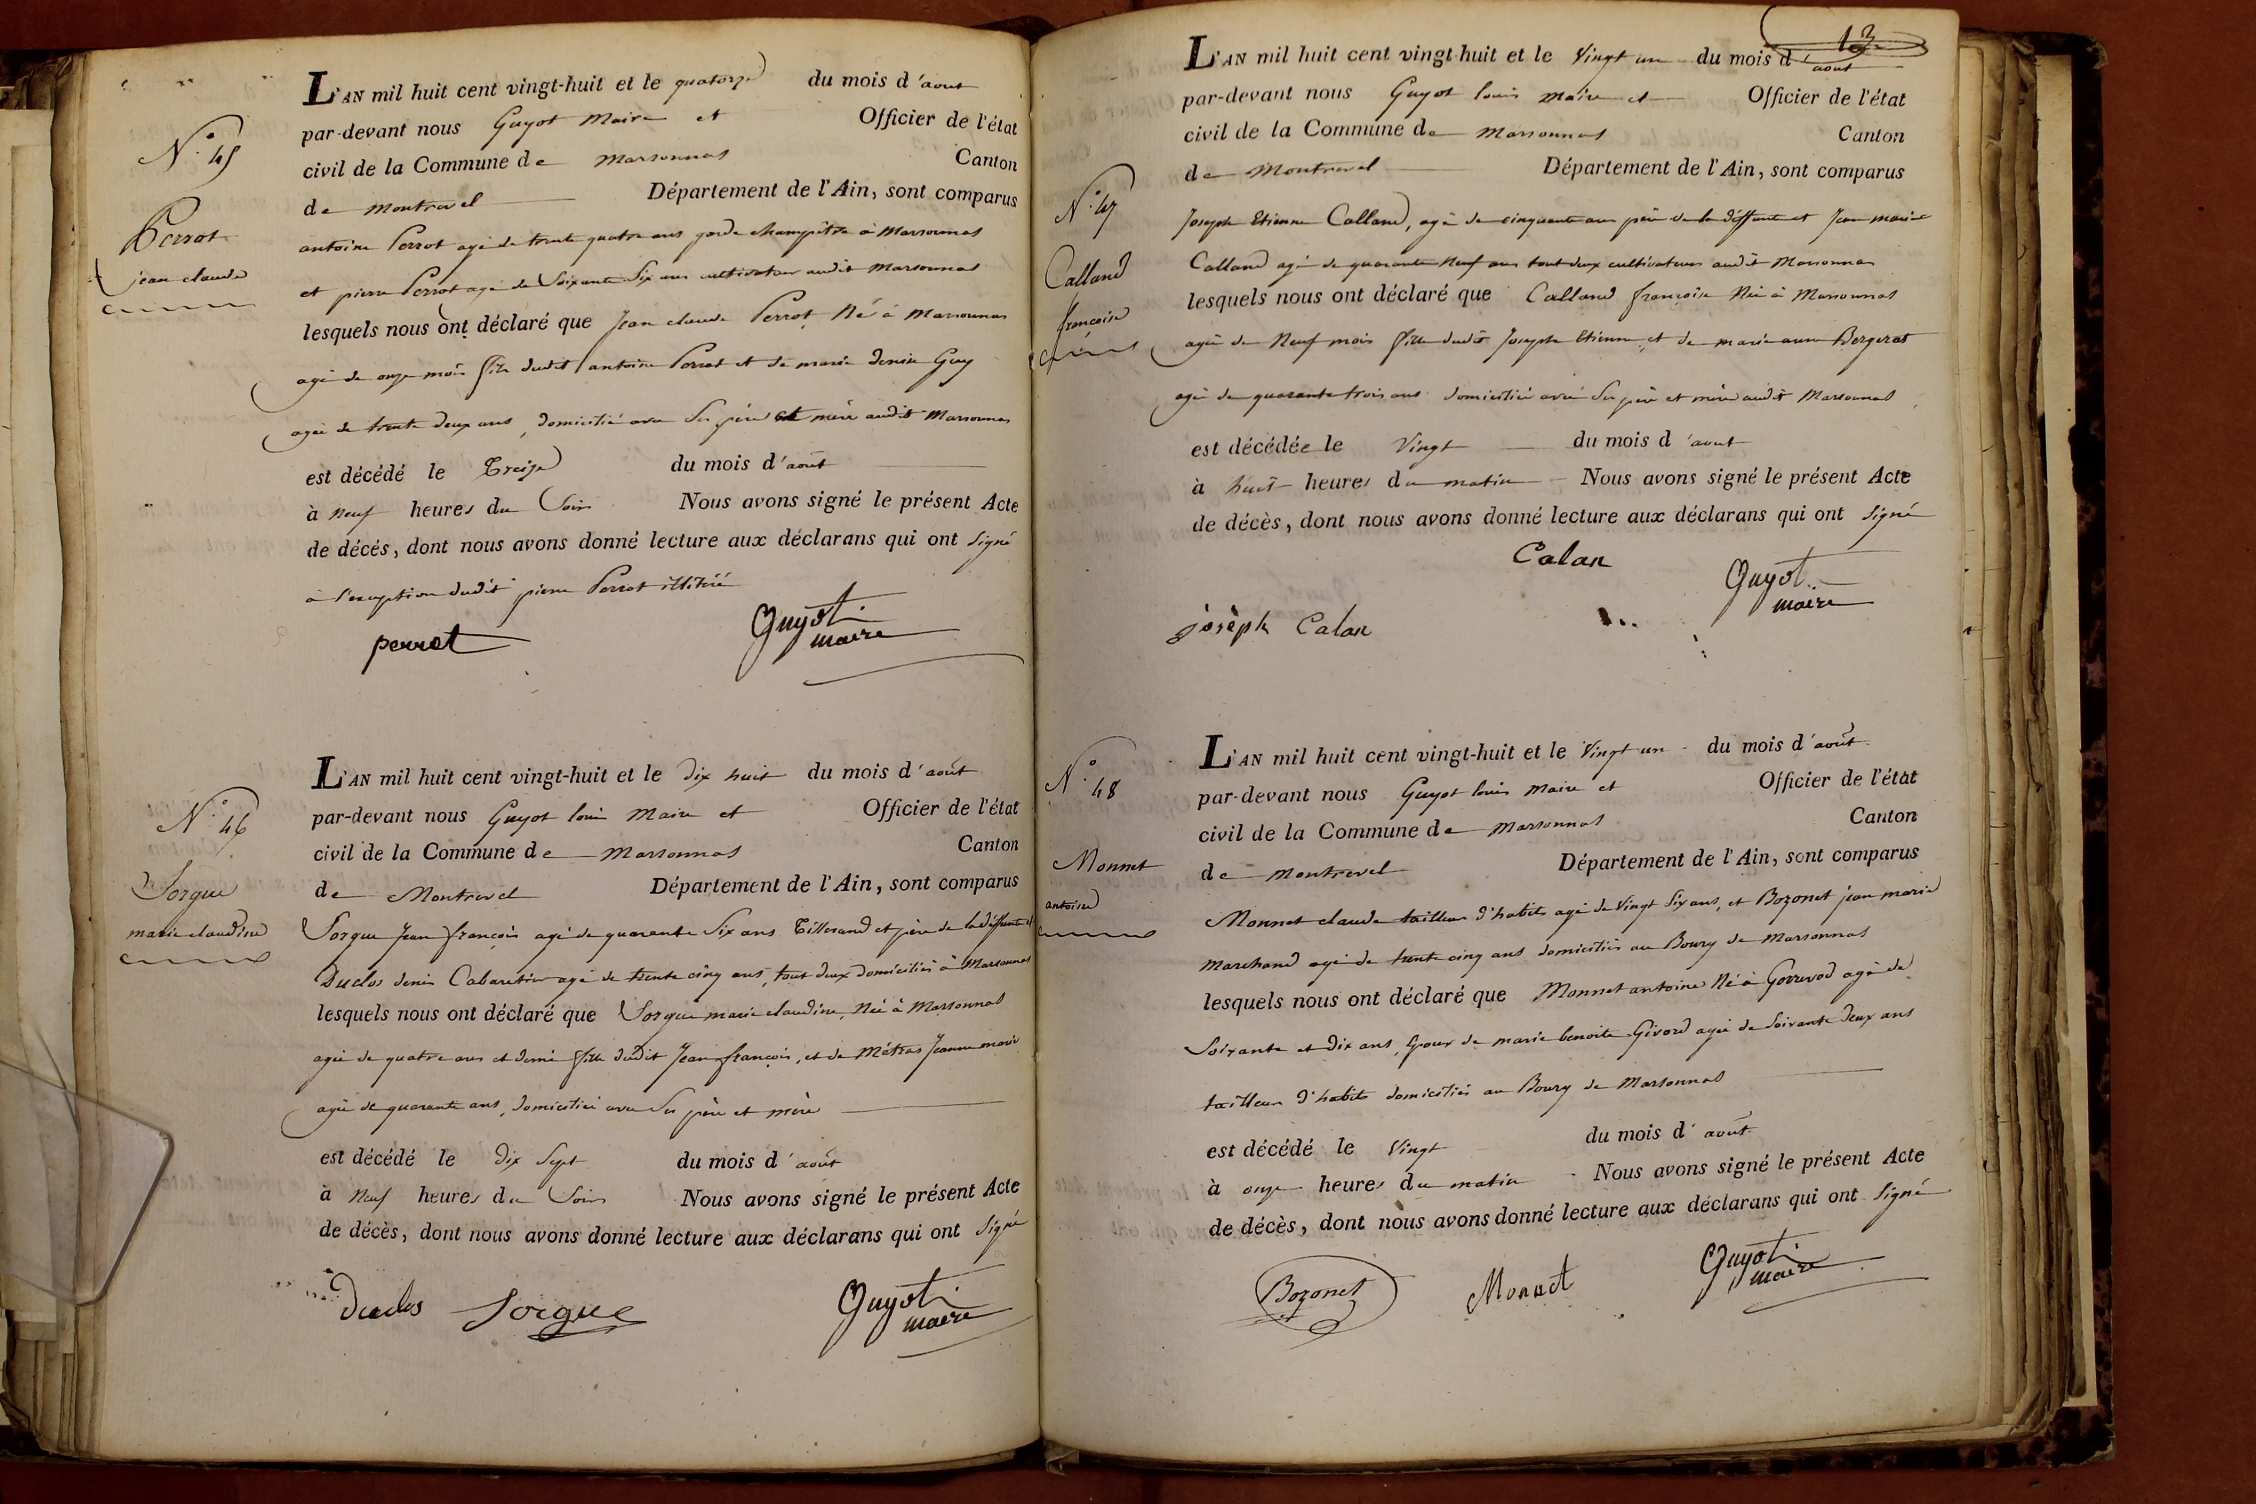 L'AN mil huit cent vingt-huit et le quatorze du mois d'aout
par-devant nous Guyot Maire et Officier de l'état
N.° 45
civil de la Commune de Marsonnas Canton
de Montrevel Département de l'Ain, sont comparus
Perrot
jean claude
antoine Perrot agé de trente quatre ans garde champêtre à Marsonnas
et pierre Perrot agé de Soixante Six ans cultivateur audit Marsonnas
lesquels nous ont déclaré que Jean claude Perrot Né à Marsonnas
agé de onze mois fils dudit antoine Perrot et de marie denise Guy
agée de trente deux ans, domicilié avec Ses père et mère audit Marsonnas
est décédé le Treize du mois d'août
à Neuf heures du Soir Nous avons signé le présent Acte
de décés, dont nous avons donné lecture aux déclarans qui ont Signé
à l'exception dudit pierre Perrot illitéré
perrot Guyot maire
L'AN mil huit cent vingt-huit et le dix huit du mois d'août
N.° 46
par-devant nous Guyot louis Maire et Officier de l'état
civil de la Commune de Marsonnas Canton
de Montrevel Département de l'Ain, sont comparus
Sorgue
marie claudine
Sorgue Jean françois agé de quarante Six ans Tillerand et père de la déffunte et
Duclos denis Cabaretier agé de trente cinq ans, tout deux domiciliés à Marsonnas
lesquels nous ont déclaré que Sorgue marie claudine, Née à Marsonnas
agée de quatre ans et demi fille dudit Jean françois, et de Métras Jeanne marie
agée de quarante ans, domiciliée avec Ses père et mère
est décédé le dix Sept du mois d'août
à Neuf heures du Soir Nous avons signé le présent Acte
de décès, dont nous avons donné lecture aux déclarans qui ont Signé
Duclos Sorgue Guyot maire
13
L'AN mil huit cent vingt-huit et le Vingt un du mois d'aout
par-devant nous Guyot louis Maire et Officier de l'état
civil de la Commune de Marsonnas Canton
de Montrevel Département de l'Ain, sont comparus
N.° 47
Calland
françoise
Joseph Etienne Calland, agé de cinquante ans père de la déffunte et Jean marie
Calland agé de quarante Neuf ans tout deux cultivateurs audit Marsonnas
lesquels nous ont déclaré que Calland françoise Née à Marsonnas
agée de Neuf mois fille dudit Joseph Etienne, et de marie anne Bergerat
agée de quarante trois ans domiciliée avec Ses père et mère audit Marsonnas
est décédée le Vingt du mois d'aout
à huit heures du matin Nous avons signé le présent Acte
de décès, dont nous avons donné lecture aux déclarans qui ont Signé
Calan
Guyot maire
josèph Calan
L'AN mil huit cent vingt-huit et le Vingt un du mois d'août
N.° 48
par-devant nous Guyot louis Maire et Officier de l'état
civil de la Commune de Marsonnas Canton
de Montrevel Département de l'Ain, sont comparus
Monnet
antoine
Monnet claude tailleur d'habits agé de Vingt Six ans, et Bozonet jean marie
Marchand agé de trente cinq ans domiciliés au Bourg de Marsonnas
lesquels nous ont déclaré que Monnet antoine Né à Gorrevod agé de
Soixante et dix ans, Epoux de marie benoite Givord agée de Soixante deux ans
tailleur d'habits domiciliés au Bourg de Marsonnas
est décédé le Vingt du mois d'août
à onze heures du matin Nous avons signé le présent Acte
de décès, dont nous avons donné lecture aux déclarans qui ont Signé
Bozonet Monnet Guyot maire